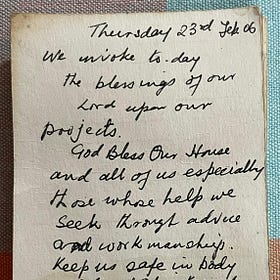 Thursday 23rd Feb 06
We invoke to-day
the blessings of our
Lord upon our
projects.
God Bless Our House
and all of us especially
those whose help we
seek through advice
and workmanship.
Keep us safe in body